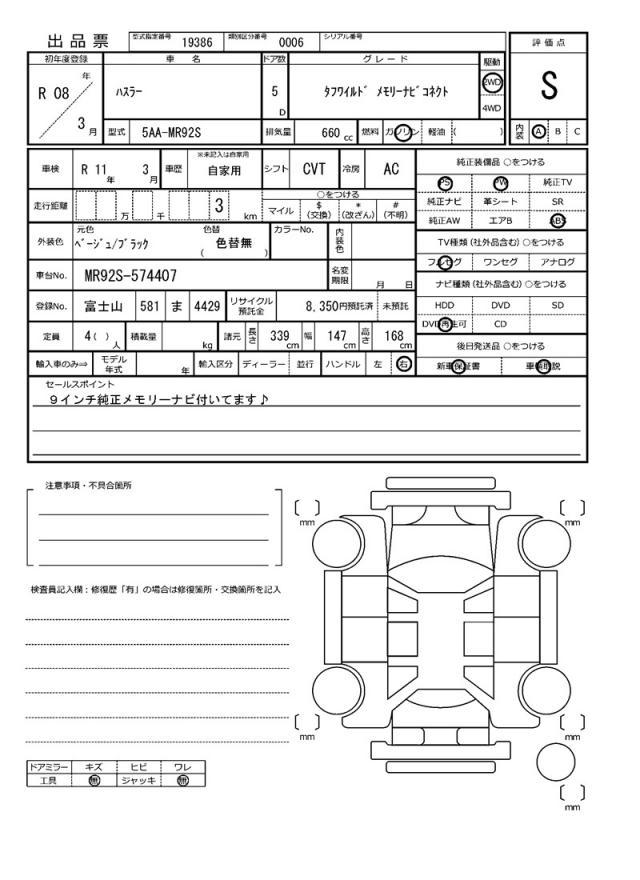 出品票 型式指定番号 19386 類別区分番号 0006 シリアル番号
評価点
S
内装 A B C
初年度登録 車名 ドア数 グレード 駆動
R 08 年 3 月
ハスラー 5 D タフワイルド メモリーナビコネクト 2WD 4WD
型式 5AA-MR92S 排気量 660 cc 燃料 ガソリン 軽油 ( )
車検 R 11 年 3 月 車歴 ※未記入は自家用 自家用 シフト CVT 冷房 AC
走行距離 万 千 3 km ○をつける
マイル $ (交換) * (改ざん) # (不明)
外装色 元色 ベージュ/ブラック 色替 ( 色替無 ) カラーNo. 内装色
車台No. MR92S-574407 名変期限 月 日
登録No. 富士山 581 ま 4429 リサイクル預託金 8,350円預託済 未預託
定員 4( ) 人 積載量 kg 諸元 長さ 339 cm 幅 147 cm 高さ 168 cm
輸入車のみ⇒ モデル年式 年 輸入区分 ディーラー 並行 ハンドル 左 右
純正装備品 ○をつける
PS PW 純正TV
純正ナビ 革シート SR
純正AW エアB ABS
TV種類(社外品含む) ○をつける
フルセグ ワンセグ アナログ
ナビ種類(社外品含む) ○をつける
HDD DVD SD
DVD再生可 CD
後日発送品 ○をつける
新車保証書 車輌取説
セールスポイント
9インチ純正メモリーナビ付いてます♪
注意事項・不具合箇所
検査員記入欄：修復歴「有」の場合は修復箇所・交換箇所を記入
mm
mm
mm
mm
mm
ドアミラー キズ ヒビ ワレ
工具 無 ジャッキ 無